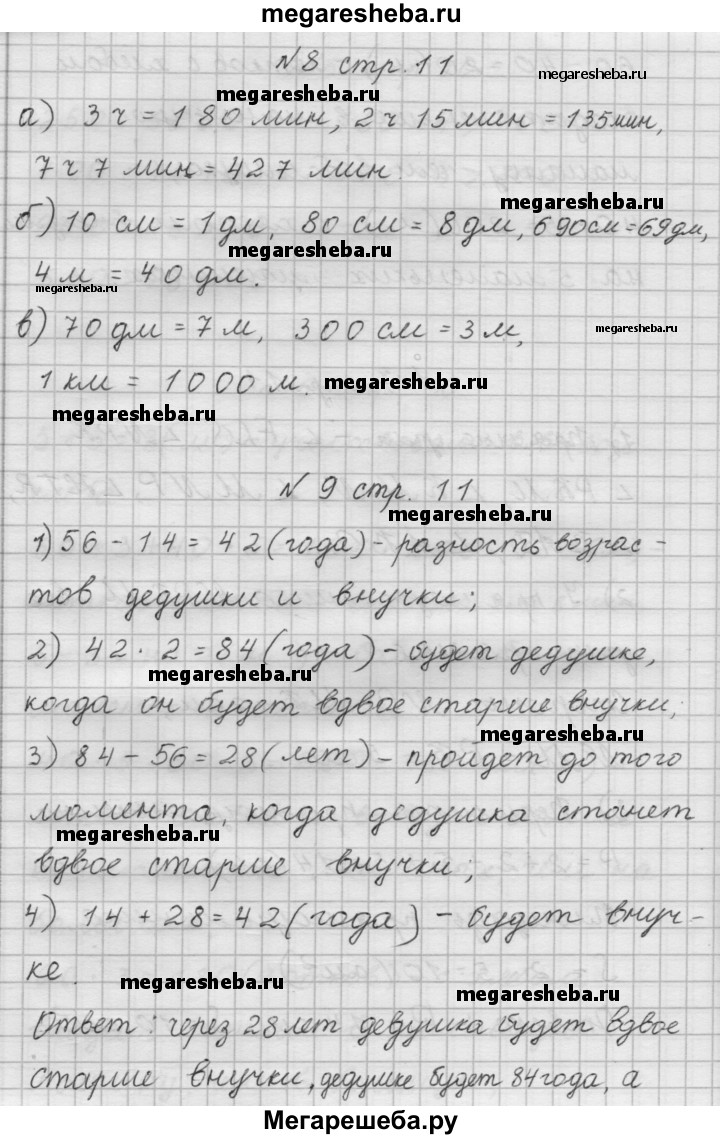 megaresheba.ru
N8 стр. 11
megaresheba.ru
megaresheba.ru
а) 3 ч = 180 мин, 2 ч 15 мин = 135 мин,
7 ч 7 мин = 427 мин.
megaresheba.ru
б) 10 см = 1 дм, 80 см = 8 дм, 690 см = 69 дм,
megaresheba.ru
4 м = 40 дм.
megaresheba.ru
в) 70 дм = 7 м, 300 см = 3 м,
megaresheba.ru
1 км = 1000 м.
megaresheba.ru
megaresheba.ru
N 9 стр. 11
megaresheba.ru
1) 56 - 14 = 42 (года) - разность возрас-
тов дедушки и внучки;
2) 42 · 2 = 84 (года) - будет дедушке,
megaresheba.ru
когда он будет вдвое старше внучки;
megaresheba.ru
3) 84 - 56 = 28 (лет) - пройдет до того
момента, когда дедушка станет
megaresheba.ru
вдвое старше внучки;
4) 14 + 28 = 42 (года) - будет внуч-
ке.
megaresheba.ru
megaresheba.ru
Ответ: через 28 лет дедушка будет вдвое
старше внучки, дедушке будет 84 года, а
Мегарешеба.ру